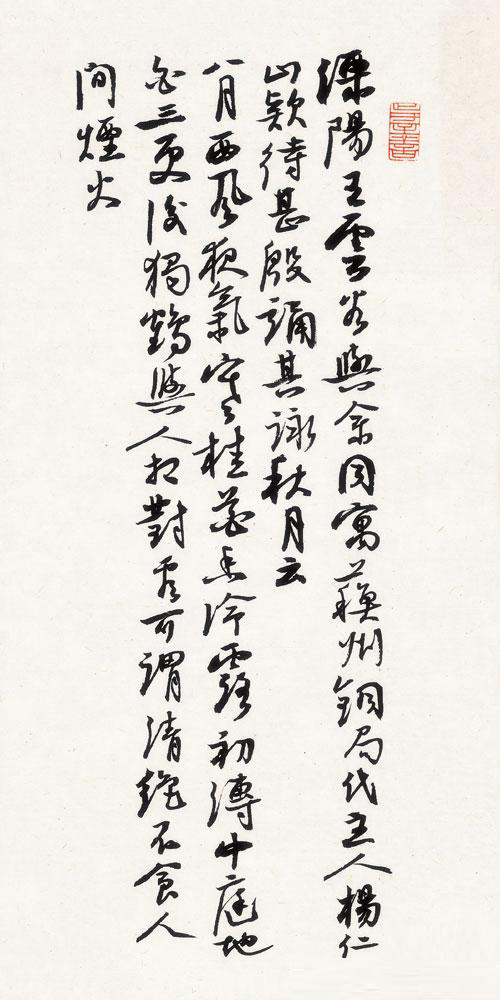 溧陽王雲谷與余同寓蘓州銅局代主人楊仁
山款待甚殷誦其詠秋月云
八月西風夜氣寒桂花香冷露初漙中庭地
白三更後獨鶴與人相對看可謂清絕不食人
間煙火